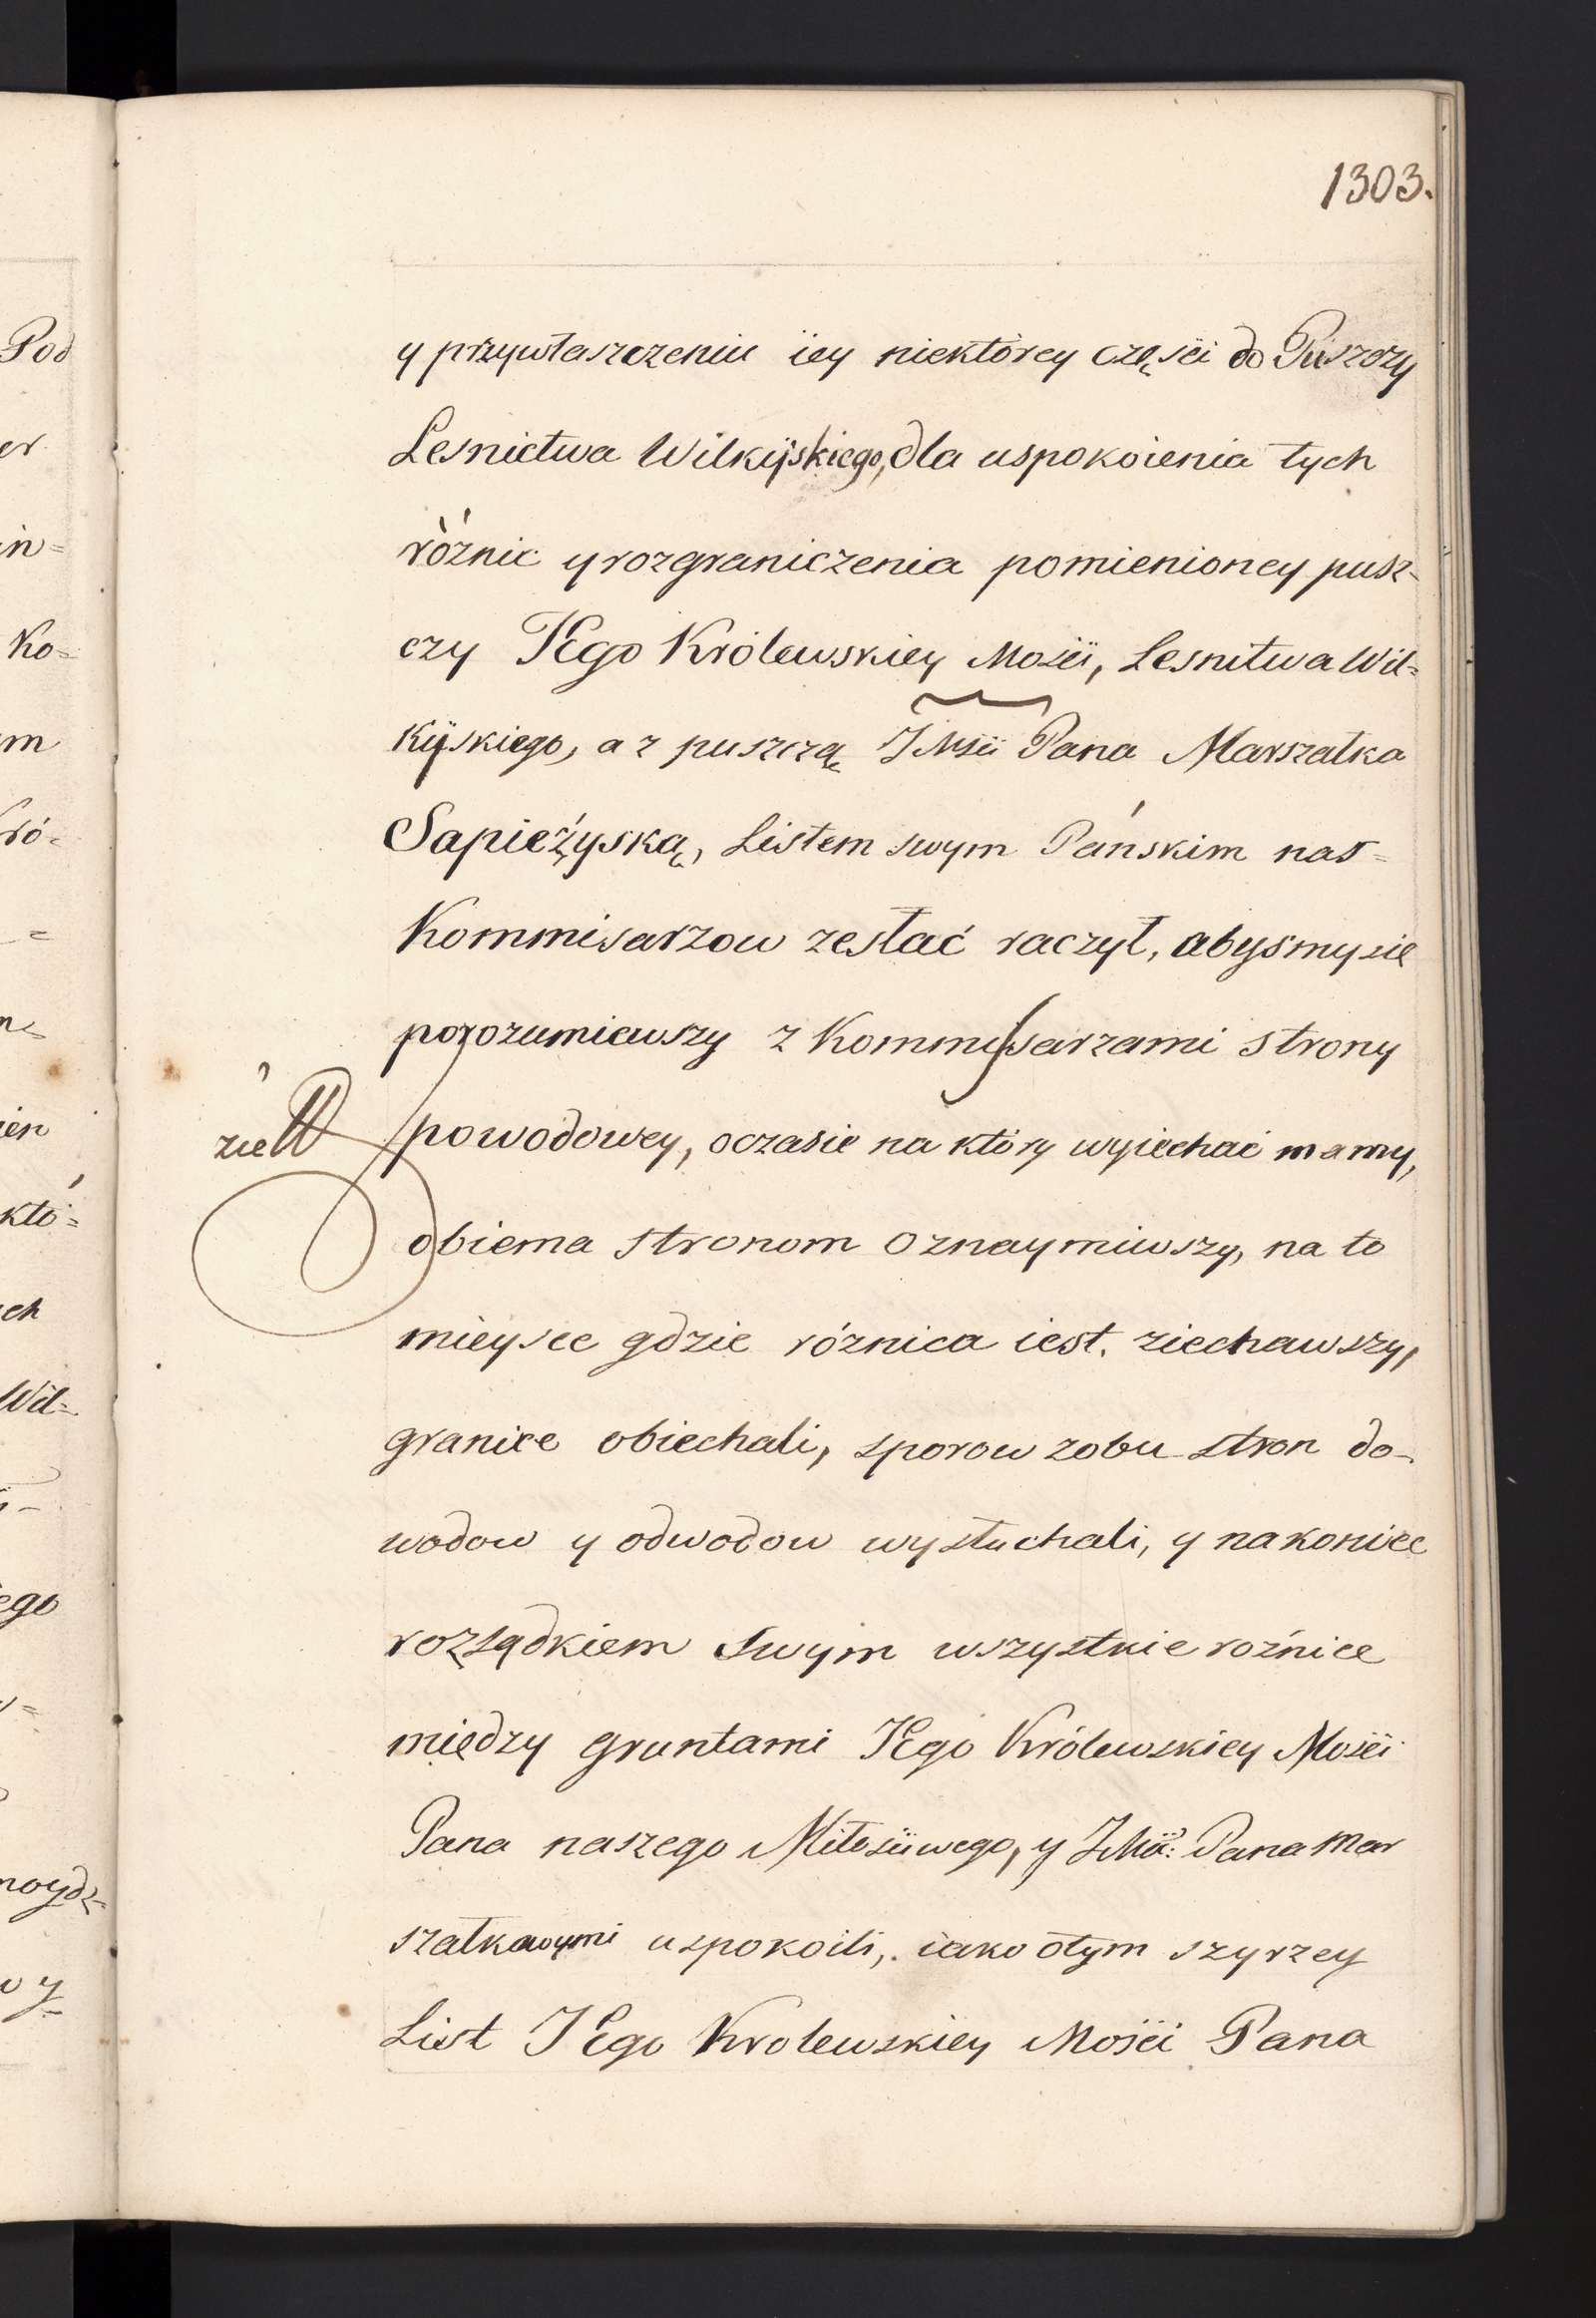 1303.
y przywłaszczeniu iey niektórey części do Puszczy
Lesnictwa Wilkijskiego, dla uspokoienia tych
różnic y rozgraniczenia pomienioney pusz-
czy JEgo Królewskiey Mości, Lesnitwa Wil=
kijskiego, a z puszczą JMści Pana Marszałka
Sapieżyską, Listem swym Pańskim nas=
Kommisarzow zesłać raczył, abysmy sie
porozumiewszy z Kommissarzami strony
powodowey, o czasie na który wyiechać mamy,
obiema stronom oznaymiwszy, na to
mieysce gdzie róznica iest, ziechawszy,
granice obiechali, sporow z obu stron do-
wodow y odwodow wysłuchali, y nakoniec
rozsądkiem swym wszystkie rożnice
między gruntami JEgo Królewskiey Mości
Pana naszego Miłościwego, y JMći: Pana Mar
szałkowymi uspokoili, iako o tym szyrzey
List JEgo Krolewskiey Mości Pana
Pod
er
in=
Ko=
m
ró=
=
ien
któ=
ch
Wil=
ego
noydz-